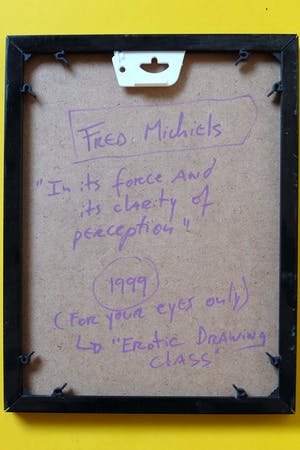 FRED. Michiels
"In its force AND
its clarity of
perception"
1999
(For your eyes only)
↳ "Erotic DRAWING
CLASS"